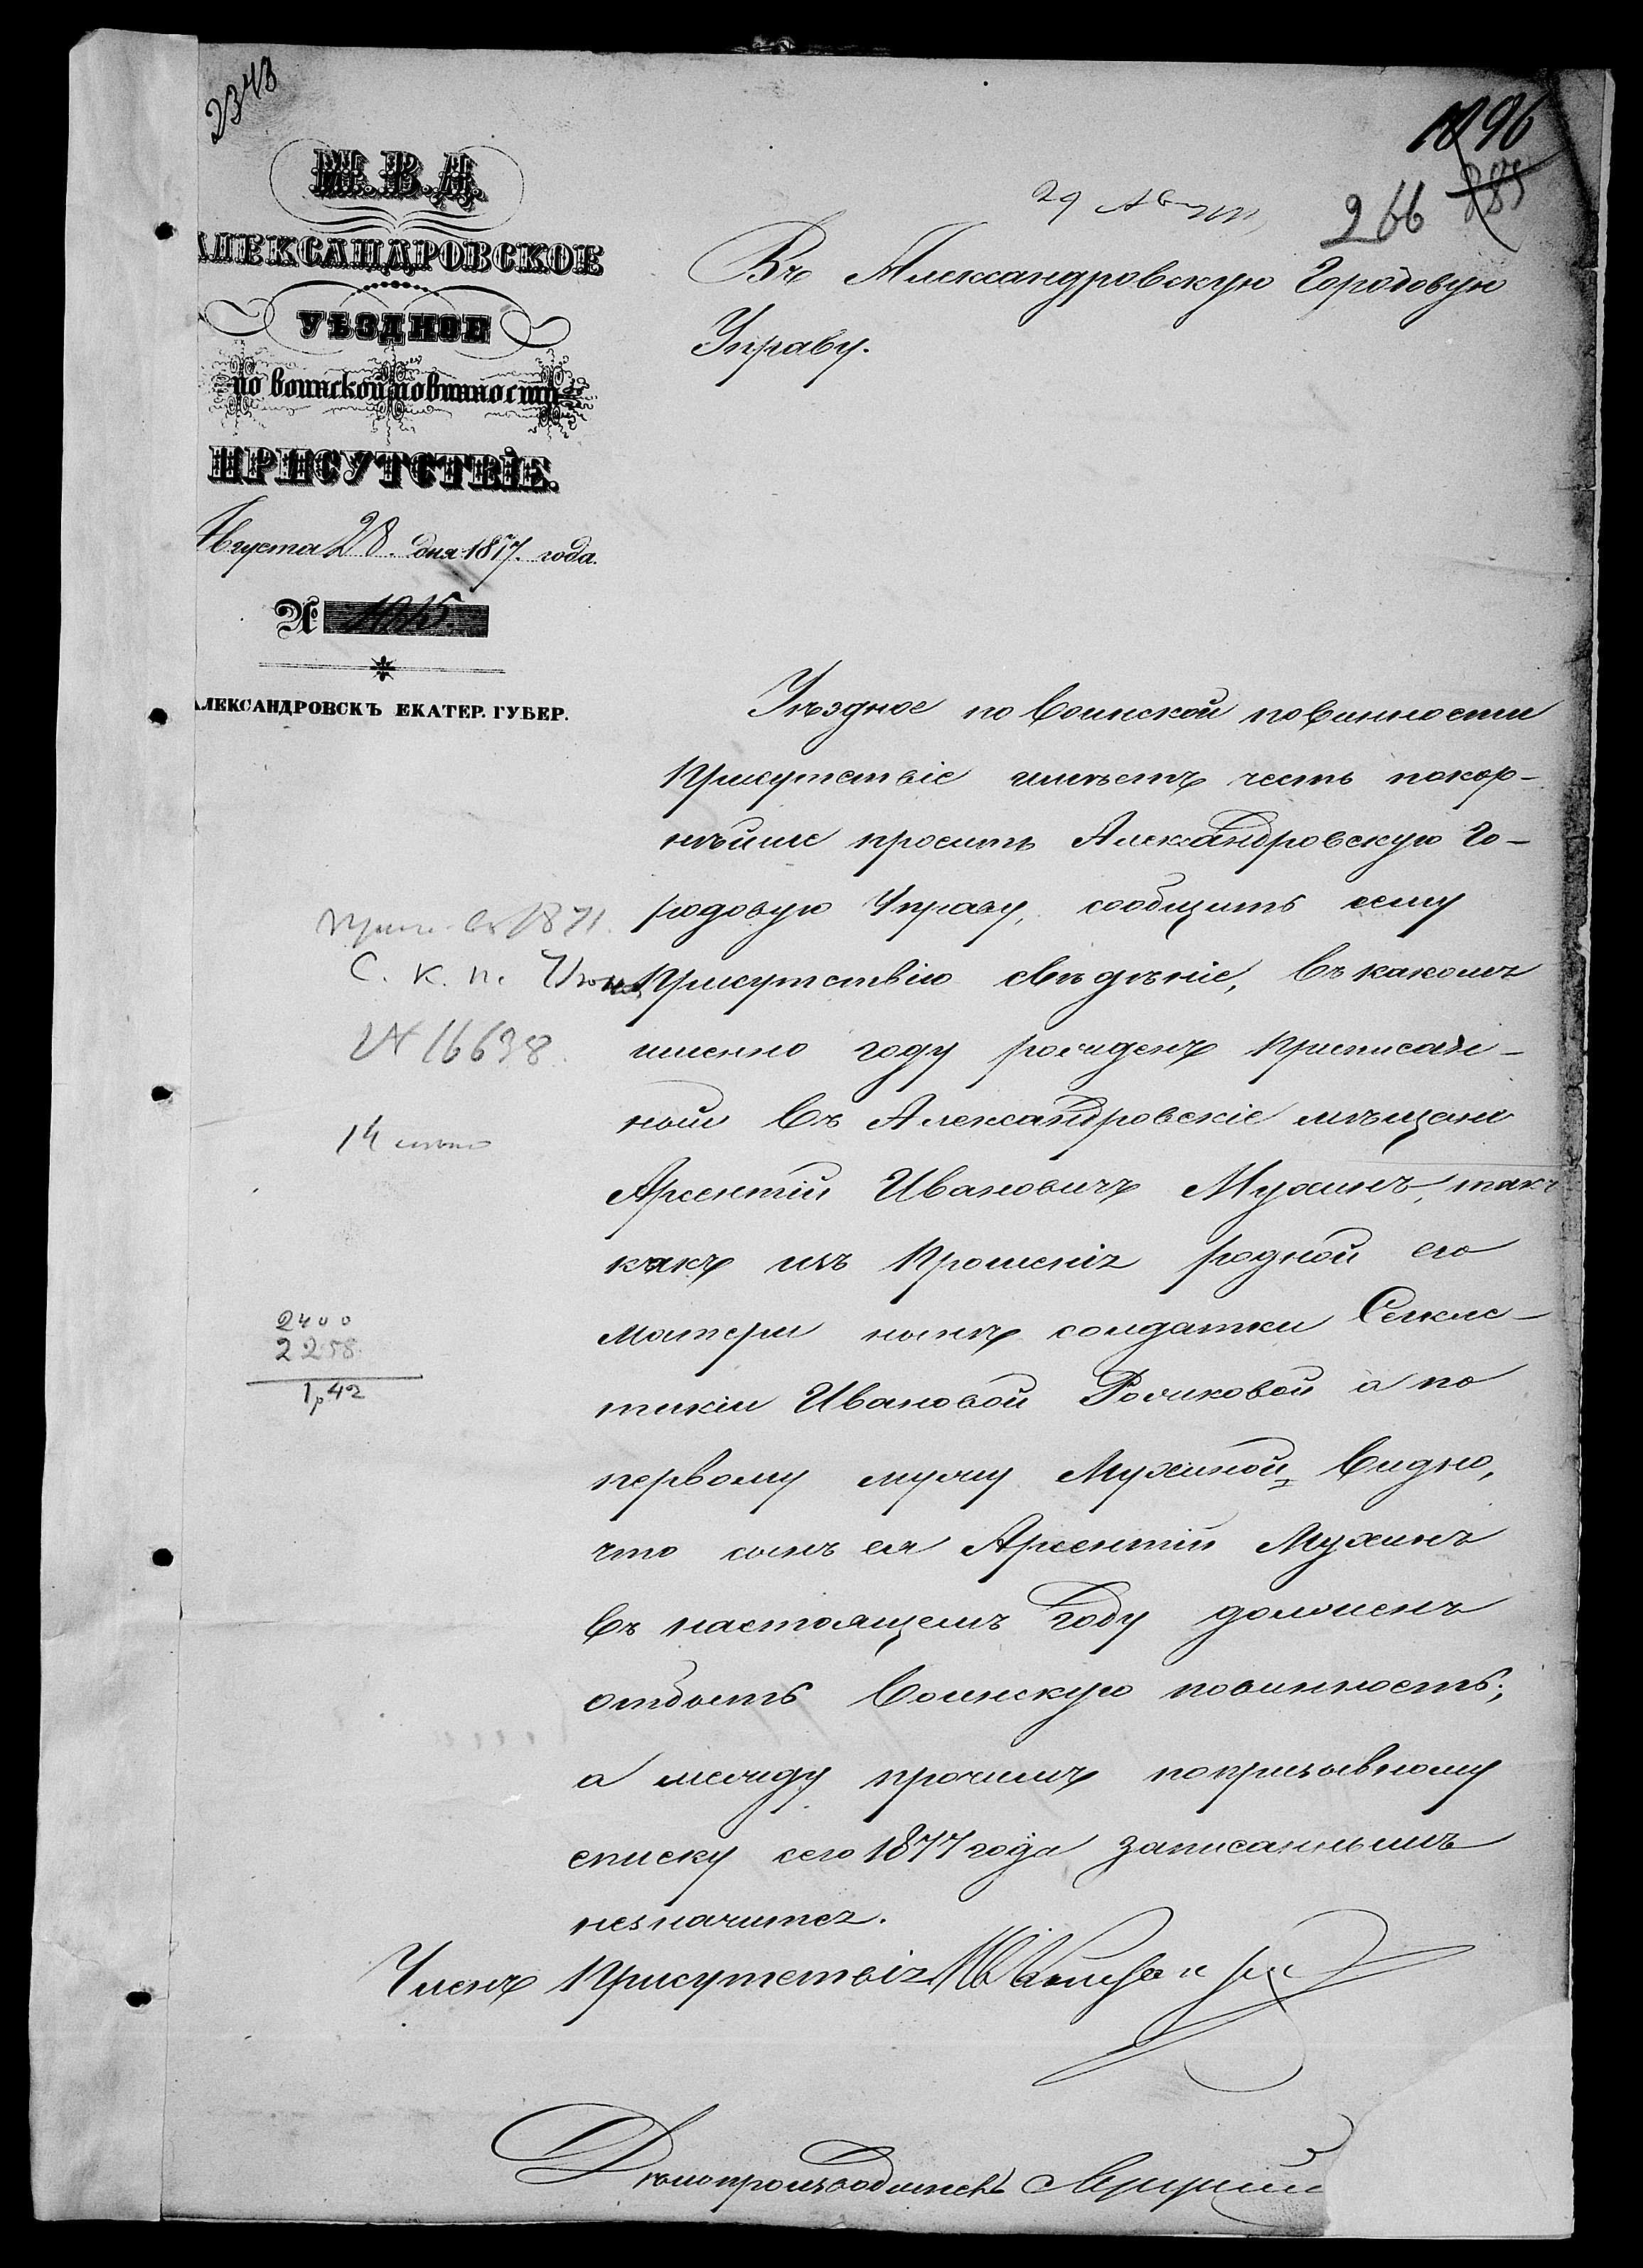 2343
М.В.Д.
АЛЕКСАНДРОВСКОЕ
УѢЗДНОЕ
по воинской повинности
ПРИСУТСТВІЕ.
Августа 28. дня 1877. года.
№
АЛЕКСАНДРОВСКЪ ЕКАТЕР. ГУБЕР.
96
885
266
29 Августа
Въ Александровскую Городовую
Управу.
Уѣздное по воинской повинности
Присутствіе имѣетъ честь покор-
нѣйше просить Александровскую Го-
родовую Управу, сообщить сему
Присутствію свѣдѣніе, въ какомъ
именно году рожденъ приписан-
ный въ Александровскіе мѣщане
Арсентій Ивановичъ Мухинъ, такъ
какъ изъ прошенія родной его
матери нынѣ солдатки Секле-
тикіи Ивановой Рожковой а по
первому мужу Мухиной, видно,
что сынъ ея Арсентій Мухинъ
въ настоящемъ году долженъ
отбыть воинскую повинность;
а между прочимъ по призывному
списку сего 1877 года записаннымъ
незначится.
Членъ Присутствія
Дѣлопроизводитель
въ 1871.
С. к. п.
№ 16638.
14
2400
2258
1,42